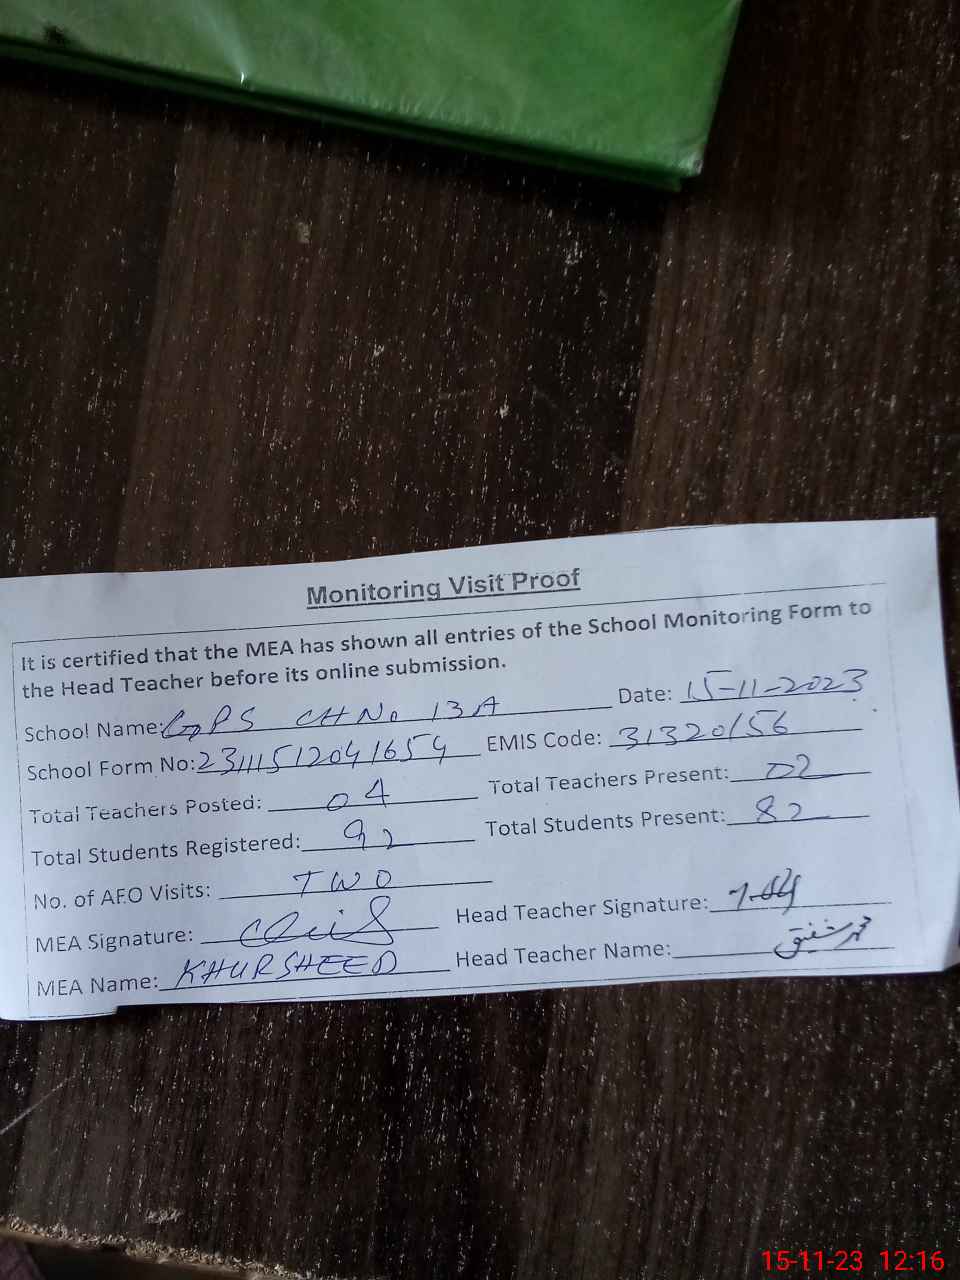 Monitoring Visit Proof
It is certified that the MEA has shown all entries of the School Monitoring Form to
the Head Teacher before its online submission.
School Name: GPS CH No 13A Date: 15-11-2023
School Form No: 23111512041654 EMIS Code: 31320156
Total Teachers Posted: 04 Total Teachers Present: 02
Total Students Registered: 92 Total Students Present: 82
No. of AFO Visits: TWO
MEA Signature: Head Teacher Signature:
MEA Name: KHURSHEED Head Teacher Name: محمد شفیق
15-11-23 12:16